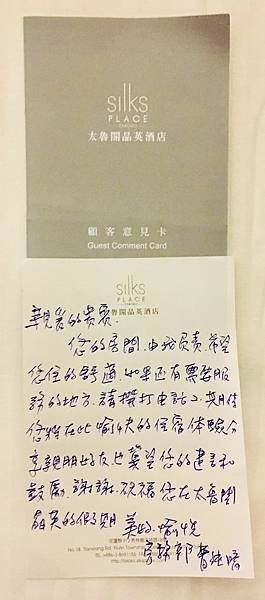 silks
PLACE
TAROKO
太魯閣晶英酒店
顧客意見卡
Guest Comment Card
silks
PLACE
TAROKO
太魯閣晶英酒店
親愛的貴賓:
您的房間.由我負責.希望
您住的舒適.如果還有需要服
務的地方.請撥打电話2.期待
您將在此愉快的住宿体驗分
享親朋好友也冀望您的建議和
鼓勵.謝謝.祝福您在太魯閣
晶英的假期 美好.愉悅
房務部